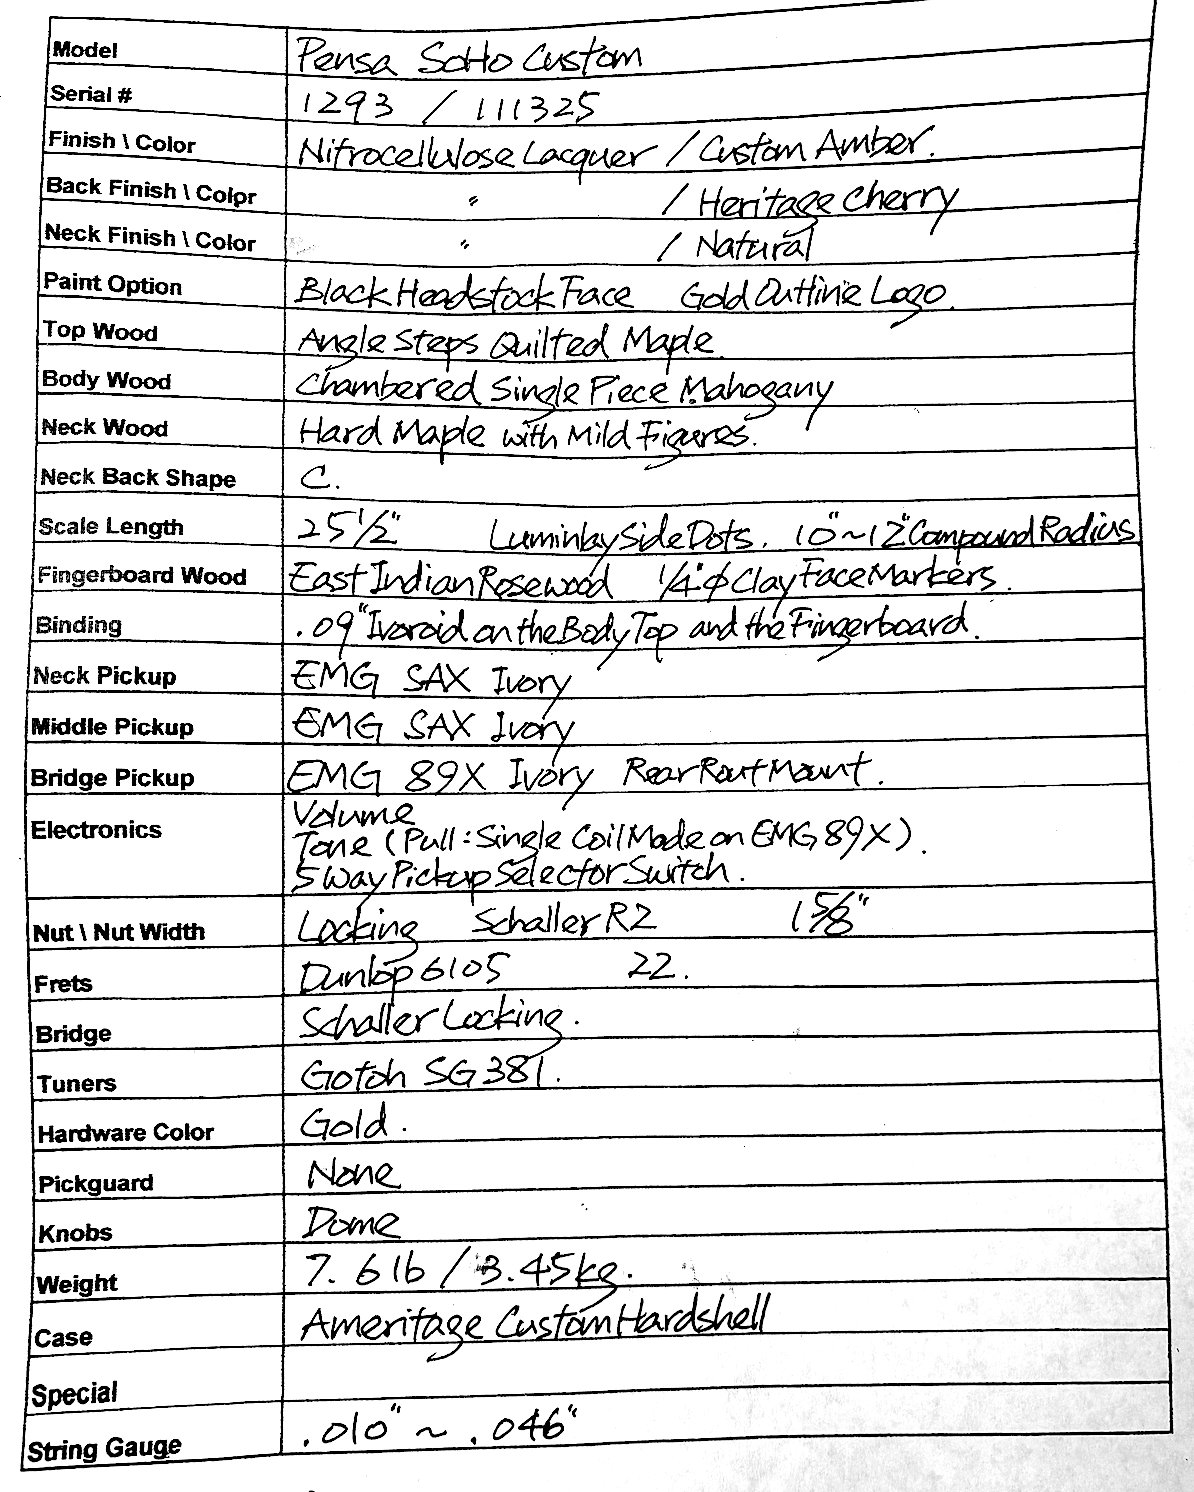 Model Pensa SoHo Custom
Serial # 1293 / 111325
Finish \ Color Nitrocellulose Lacquer / Custom Amber.
Back Finish \ Color 〃 / Heritage Cherry
Neck Finish \ Color 〃 / Natural
Paint Option Black Headstock Face Gold Outline Logo.
Top Wood Angle Steps Quilted Maple.
Body Wood Chambered Single Piece Mahogany
Neck Wood Hard Maple with Mild Figures.
Neck Back Shape C.
Scale Length 25 1/2" Luminlay Side Dots. 10"~12" Compound Radius
Fingerboard Wood East Indian Rosewood 1/4"φ Clay Face Markers.
Binding .09" Ivoroid on the Body Top and the Fingerboard.
Neck Pickup EMG SAX Ivory
Middle Pickup EMG SAX Ivory
Bridge Pickup EMG 89X Ivory Rear Rout Mount.
Electronics Volume
Tone (Pull : Single Coil Mode on EMG 89X).
5 Way Pickup Selector Switch.
Nut \ Nut Width Locking Schaller R2 1 5/8"
Frets Dunlop 6105 22.
Bridge Schaller Locking.
Tuners Gotoh SG381.
Hardware Color Gold.
Pickguard None
Knobs Dome
Weight 7.6 lb / 3.45 kg.
Case Ameritage Custom Hardshell
Special
String Gauge .010" ~ .046"